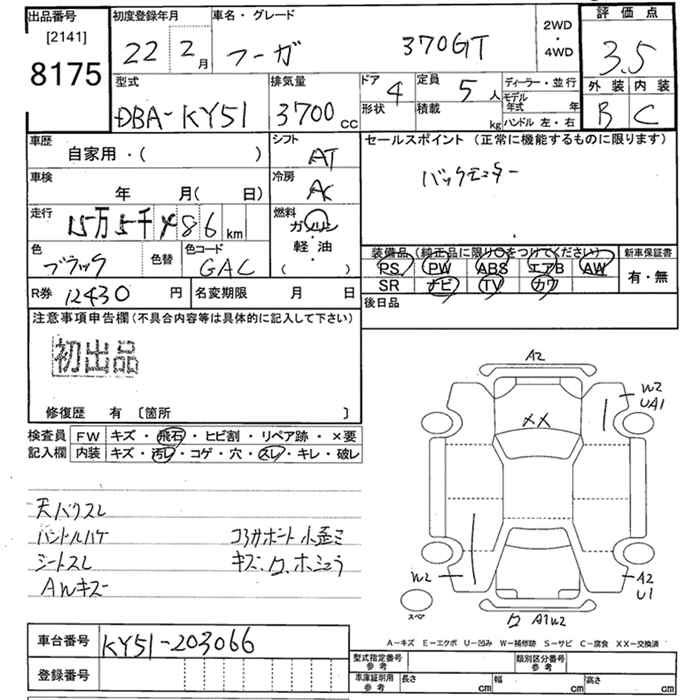 出品番号
[2141]
8175
初度登録年月
22 2月
車名・グレード
フーガ 370GT
2WD
・
4WD
評価点
3.5
外装 内装
B C
型式
DBA-KY51
排気量
3700 cc
ドア 4
形状
定員 5人
積載 kg
ディーラー・並行
モデル年式 年
ハンドル 左・右
車歴
自家用・( )
シフト
AT
セールスポイント (正常に機能するものに限ります)
バックモニター
車検
年 月( 日)
冷房
AC
走行
15万5千486km
燃料
ガソリン
軽・油
( )
色
ブラック
色替
色コード
GAC
装備品 (純正品に限り○をつけてください)
PS PW ABS エアB AW
SR ナビ TV カワ
新車保証書
有・無
R券 12430円
名変期限 月 日
後日品
注意事項申告欄(不具合内容等は具体的に記入して下さい)
初出品
修復歴 有 〔箇所 〕
検査員
記入欄
FW キズ・飛石・ヒビ割・リペア跡・×要
内装 キズ・汚レ・コゲ・穴・スレ・キレ・破レ
天バリスレ
ハンドルハゲ コアサポート小歪ミ
シートスレ
AWキズー
A2
W2
UA1
XX
W2
A2
U1
スペア
A1W2
A-キズ E-エクボ U-凹み W-補修跡 S-サビ C-腐食 XX-交換済
車台番号 KY51-203066
登録番号
型式指定番号
参考
類別区分番号
参考
車庫証明用
参考
長さ cm 幅 cm 高さ cm